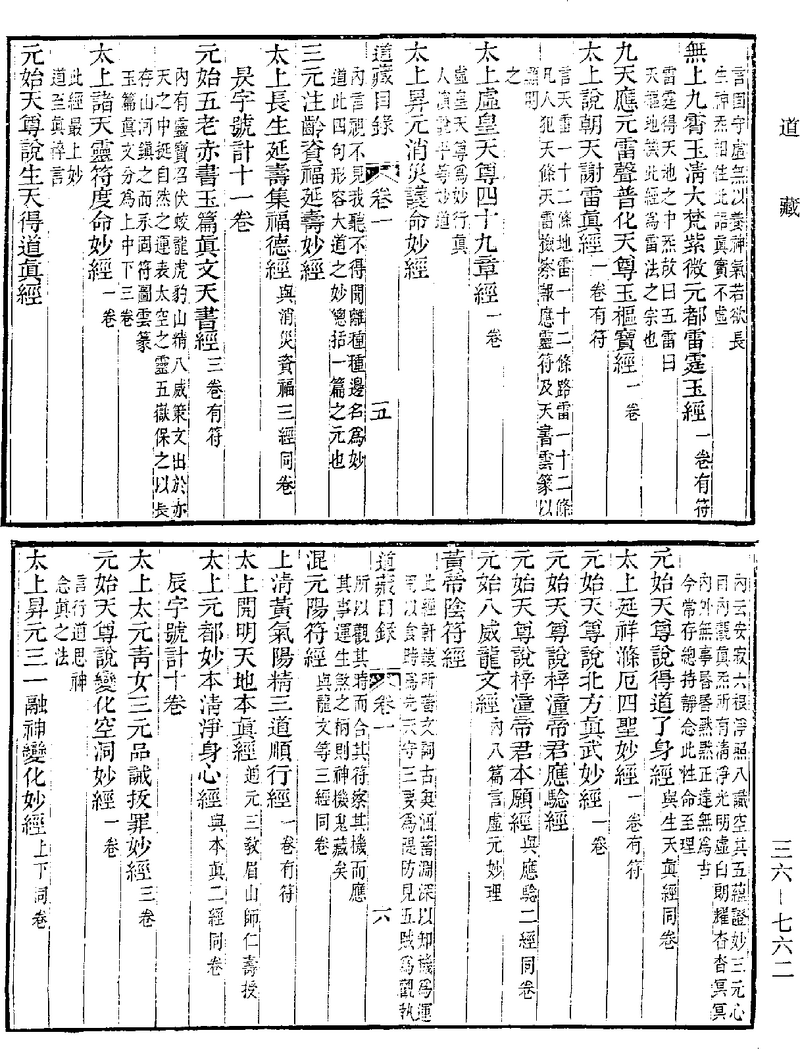 道藏
言固守虛無以養神氣若欲長
生神炁相注此語眞實不虛
無上九霄玉淸大梵紫微元都雷霆玉經一卷有符
雷霆得天地之中炁故曰五雷曰
天罡地煞此經爲雷法之宗也
九天應元雷聲普化天尊玉樞寶經一卷
太上說朝天謝雷眞經一卷有符
言天雷一十二條地雷一十二條路雷一十二條
凡人犯天條天雷檢察報應靈符及天書雲篆以
照明
之
太上虛皇天尊四十九章經一卷
虛皇天尊爲妙行眞
人演說平等妙道
太上昇元消災護命妙經
道藏目錄 卷一 五
內言視不見我聽不得聞離種種邊名爲妙
道此四句形容大道之妙總括一篇之元也
三元注齡資福延壽妙經
太上長生延壽集福德經與消災資福三經同卷
昃字號計十一卷
元始五老赤書玉篇眞文天書經三卷有符
內有靈寶召伏蛟龍虎豹山精八威策文出於赤
天之中挺自然之運表太空之靈五嶽保之以長
存山河鎮之而永固符圖雲篆
玉篇眞文分爲上中下三卷
太上諸天靈符度命妙經一卷
此經最上妙
道至眞粹言
元始天尊說生天得道眞經
內云安寂六根淨照八識空其五蘊證妙三元心
目內觀眞炁所有淸淨光明虛白朗耀杳杳冥冥
內外無事昏昏默默正達無爲古
今常存總持靜念此性命至理
元始天尊說得道了身經與生天眞經同卷
太上延祥滌厄四聖妙經一卷有符
元始天尊說北方眞武妙經一卷
元始天尊說梓潼帝君應驗經
元始天尊說梓潼帝君本願經與應驗二經同卷
元始八威龍文經內八篇言虛元妙理
黃帝陰符經
此經計該所蓄文詞古奧涵蓄淵深以知機爲運
用以食時爲先天守三要爲隄防見五賊爲觀執
道藏目錄 卷一 六
所以觀其時而合其符察其機而應
其事運生煞之柄則神機鬼藏矣
混元陽符經與龍文等三經同卷
上淸黃氣陽精三道順行經一卷有符
太上開明天地本眞經道元三敎眉山師仁壽授
太上元都妙本淸淨身心經與本眞二經同卷
辰字號計十卷
太上太元靑女三元品誡拔罪妙經三卷
元始天尊說變化空洞妙經一卷
言行道思神
念眞之法
太上昇元三一融神變化妙經上下同卷
三六–七六二